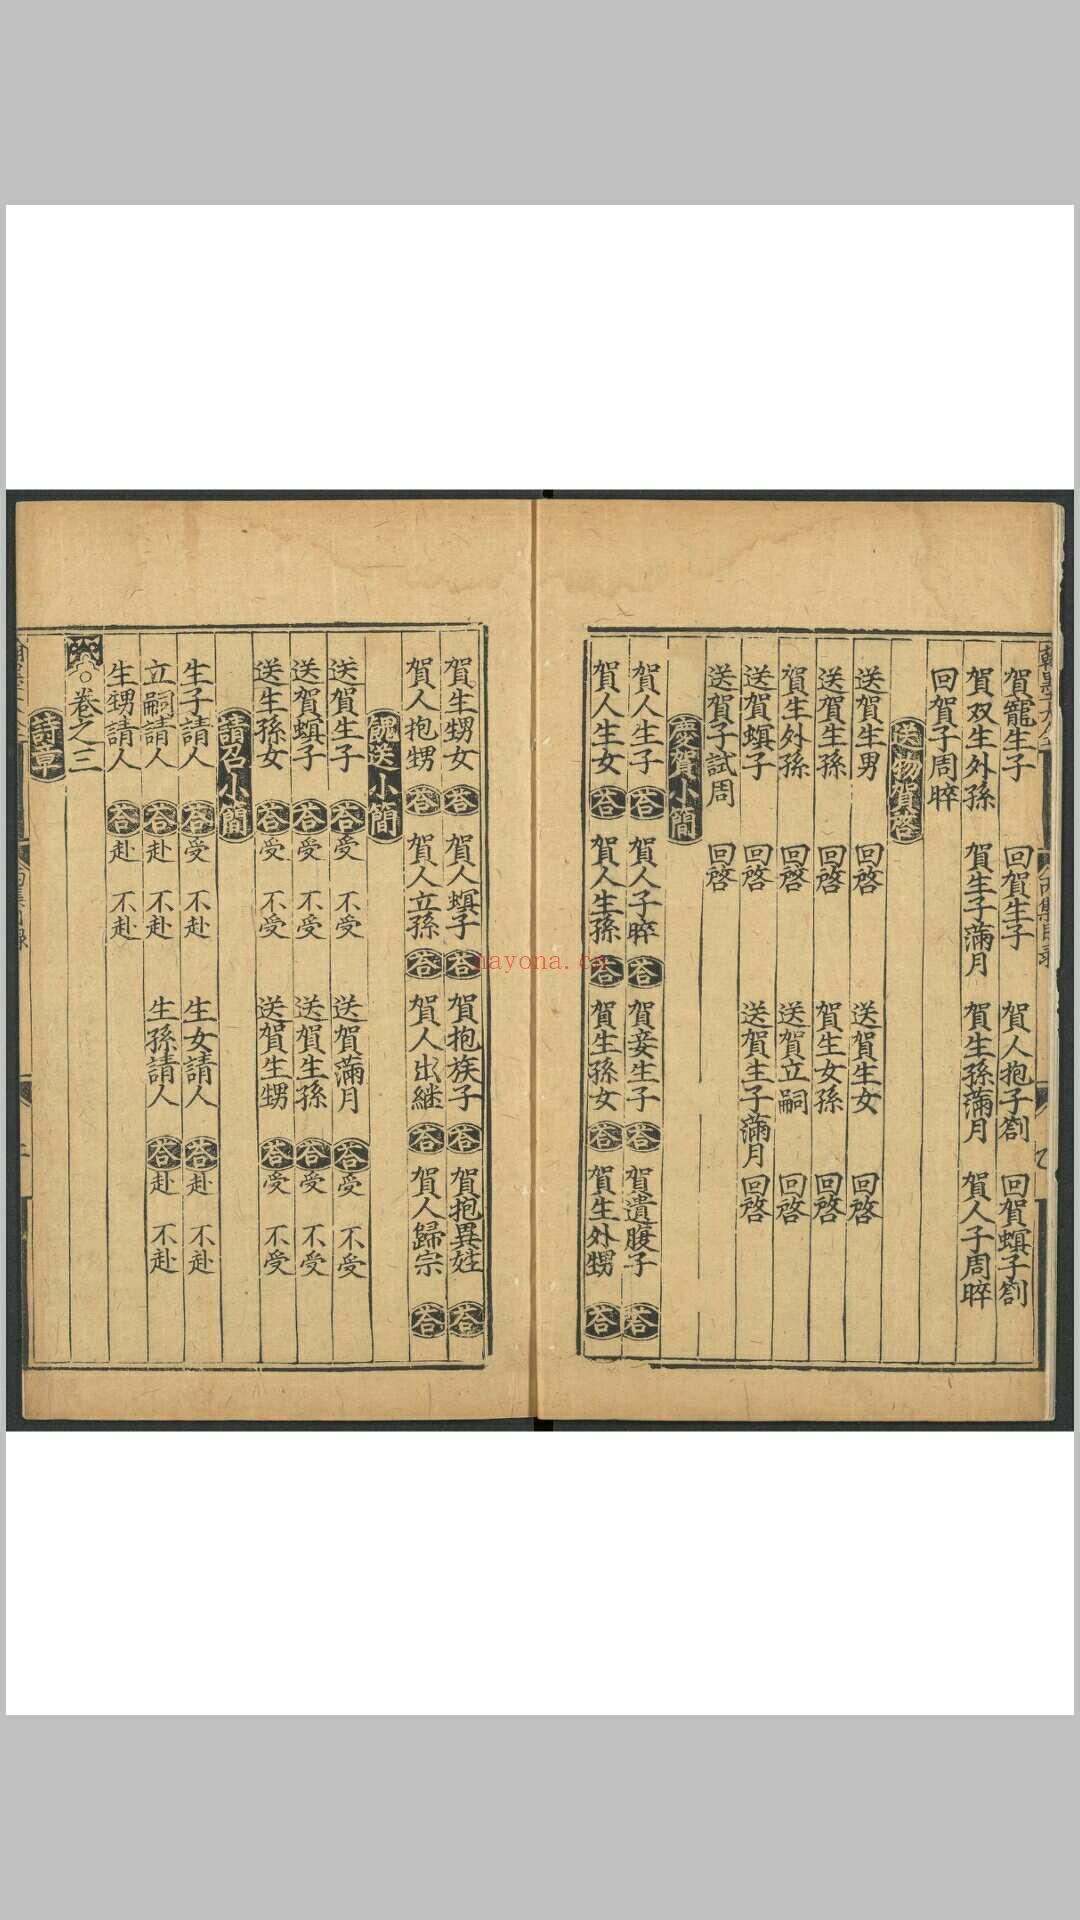 賀寵生子 回賀生子 賀人抱子劄 回賀螟子劄
賀双生外孫 賀生子滿月 賀生孫滿月 賀人子周晬
回賀子周晬
送物賀啓
送賀生男 回啓 送賀生女 回啓
送賀生孫 回啓 賀生女孫 回啓
賀生外孫 回啓 送賀立嗣 回啓
送賀螟子 回啓 送賀生子滿月 回啓
送賀子試周 回啓
慶賀小簡
賀人生子 荅 賀人子晬 荅 賀妾生子 荅 賀遺腹子 荅
賀人生女 荅 賀人生孫 荅 賀生孫女 荅 賀生外甥 荅
賀生甥女 荅 賀人螟子 荅 賀抱族子 荅 賀抱異姓 荅
賀人抱甥 荅 賀人立孫 荅 賀人出継 荅 賀人歸宗 荅
餽送小簡
送賀生子 荅受 不受 送賀滿月 荅受 不受
送賀螟子 荅受 不受 送賀生孫 荅受 不受
送生孫女 荅受 不受 送賀生甥 荅受 不受
請召小簡
生子請人 荅受 不赴 生女請人 荅赴 不赴
立嗣請人 荅赴 不赴 生孫請人 荅赴 不赴
生甥請人 荅赴 不赴
卷之三
詩章
nayona.cn